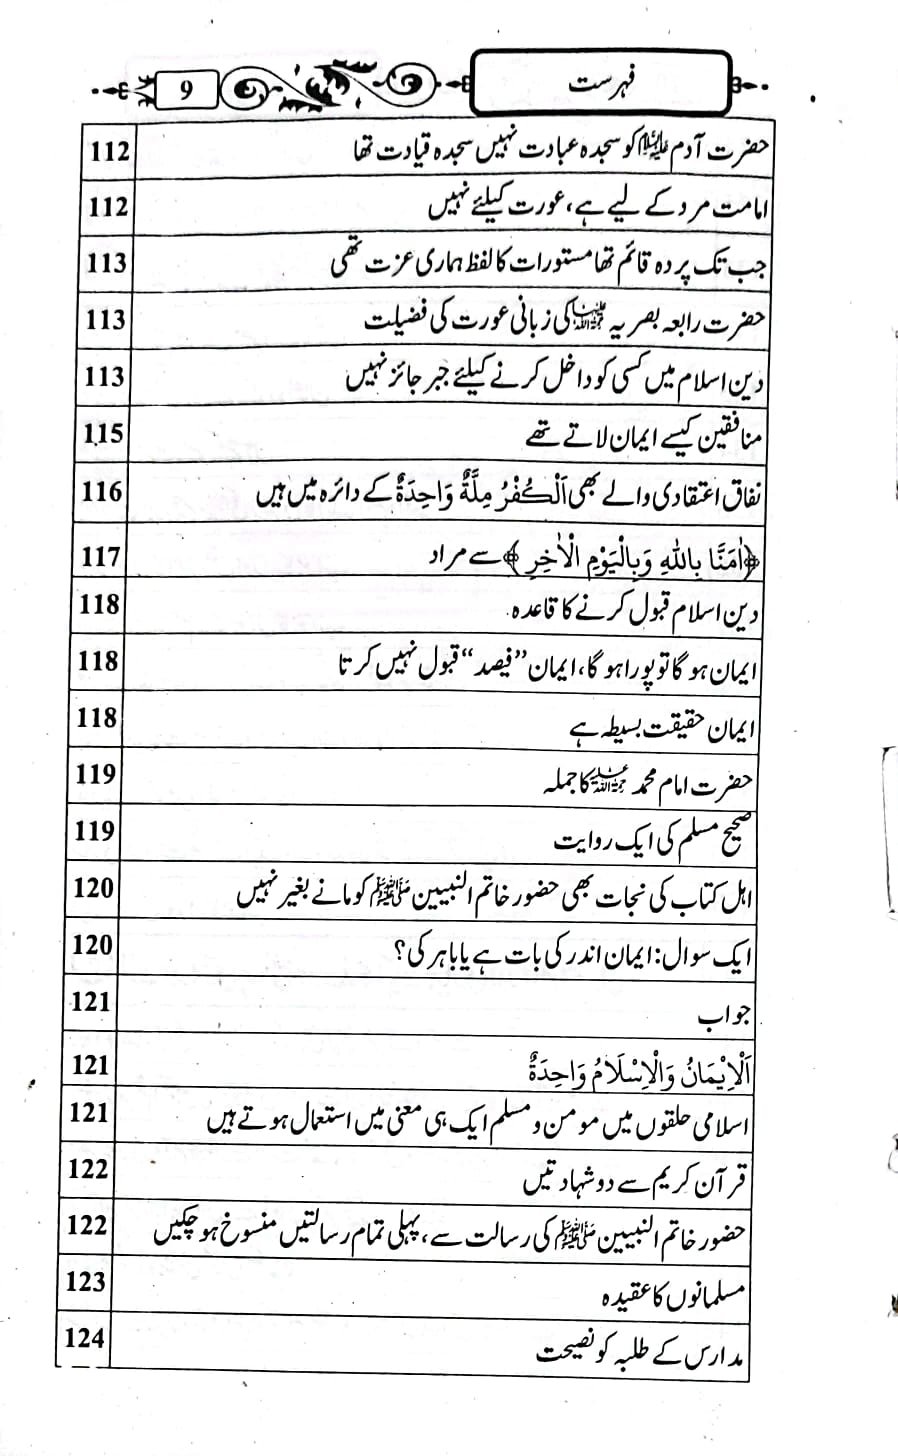 فہرست
9
حضرت آدم علیہ السلام کو سجدہ عبادت نہیں سجدہ قیادت تھا 112
امامت مرد کے لیے ہے، عورت کیلئے نہیں 112
جب تک پردہ قائم تھا مستورات کا لفظ ہماری عزت تھی 113
حضرت رابعہ بصریہ رحمۃ اللہ علیہا کی زبانی عورت کی فضیلت 113
دین اسلام میں کسی کو داخل کرنے کیلئے جبر جائز نہیں 113
منافقین کیسے ایمان لاتے تھے 115
نفاق اعتقادی والے بھی اَلْکُفْرُ مِلَّةٌ وَاحِدَةٌ کے دائرہ میں ہیں 116
﴿اٰمَنَّا بِاللّٰهِ وَبِالْيَوْمِ الْاٰخِرِ﴾ سے مراد 117
دین اسلام قبول کرنے کا قاعدہ 118
ایمان ہو گا تو پورا ہو گا، ایمان ”فیصد“ قبول نہیں کرتا 118
ایمان حقیقت بسیطہ ہے 118
حضرت امام محمد رحمۃ اللہ علیہ کا جملہ 119
صحیح مسلم کی ایک روایت 119
اہل کتاب کی نجات بھی حضور خاتم النبیین ﷺ کو مانے بغیر نہیں 120
ایک سوال: ایمان اندر کی بات ہے یا باہر کی؟ 120
جواب 121
اَلْاِيْمَانُ وَالْاِسْلَامُ وَاحِدَةٌ 121
اسلامی حلقوں میں مومن و مسلم ایک ہی معنی میں استعمال ہوتے ہیں 121
قرآن کریم سے دو شہادتیں 122
حضور خاتم النبیین ﷺ کی رسالت سے، پہلی تمام رسالتیں منسوخ ہو چکیں 122
مسلمانوں کا عقیدہ 123
مدارس کے طلبہ کو نصیحت 124